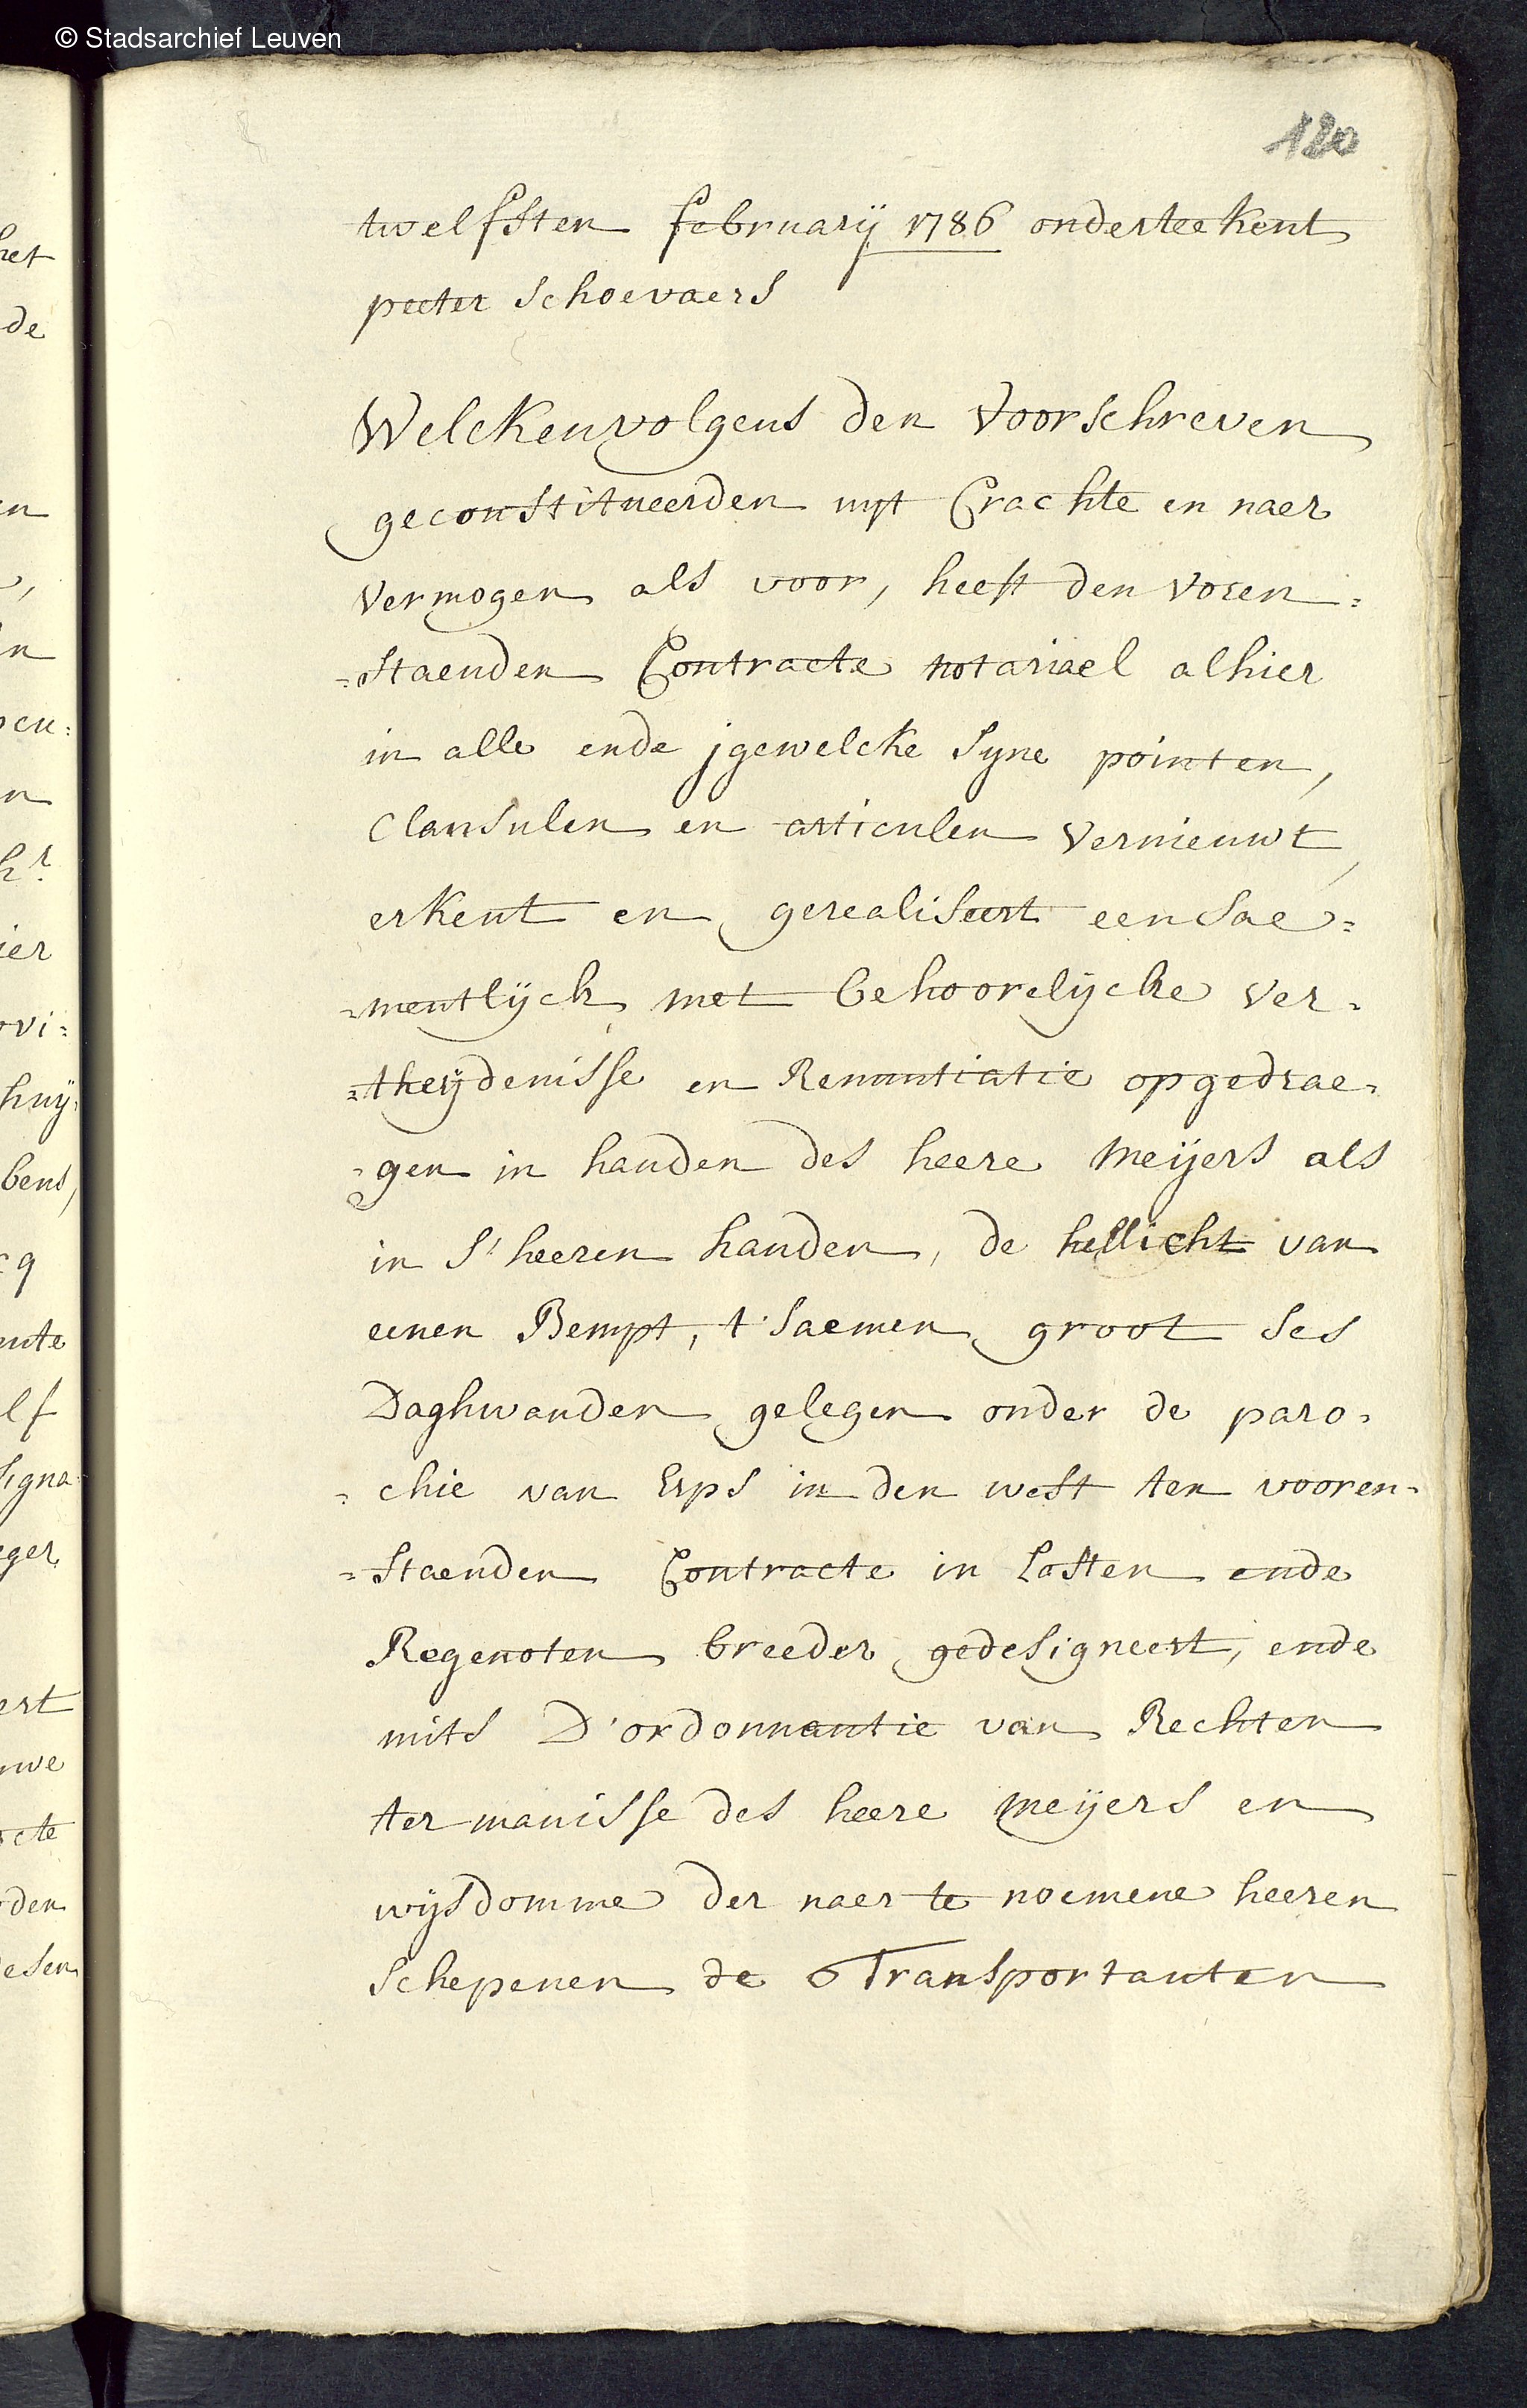 © Stadsarchief Leuven
120
twelfsten februarij 1786 onderteekent
peeter Schoevaers
Welckenvolgens den voorschreven
geconstitueerden uyt Crachte en naer
vermogen als voor, heeft den voren=
=staenden Contracte notariael alhier
in alle ende jgewelcke syne pointen,
Clausulen en articulen vernieuwt,
erkent en gerealiseert een sae=
=mentlijck met behoorelijcke ver=
=theijdenisse en Renuntiatie opgedrae=
=gen in handen des heere meijers als
in s'heeren handen, de hellicht van
eenen Bempt, t'saemen groot ses
Daghwanden gelegen onder de paro=
=chie van Erps in den west ten vooren=
=staenden Contracte in Lasten ende
Regenoten breeder gedesigneert, ende
mits D'ordonnantie van Rechten
ter manisse des heere meijers en
wijsdomme der naer te noemene heeren
schepenen de Transportanten